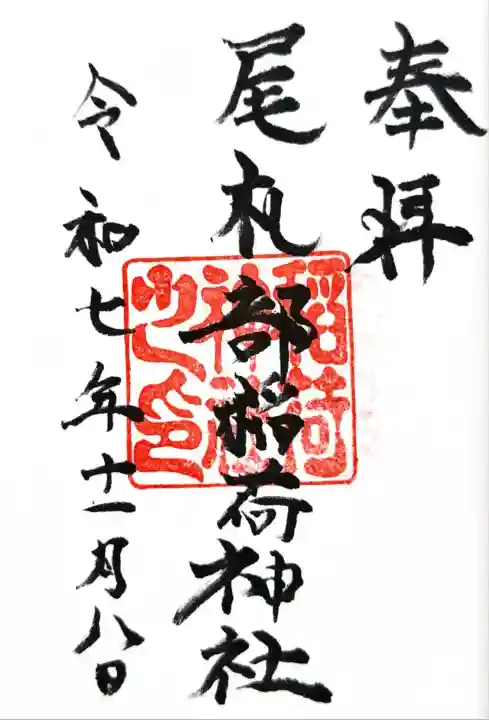 奉拝
尾札部稲荷神社
稲荷
神社
之印
令和七年十一月八日